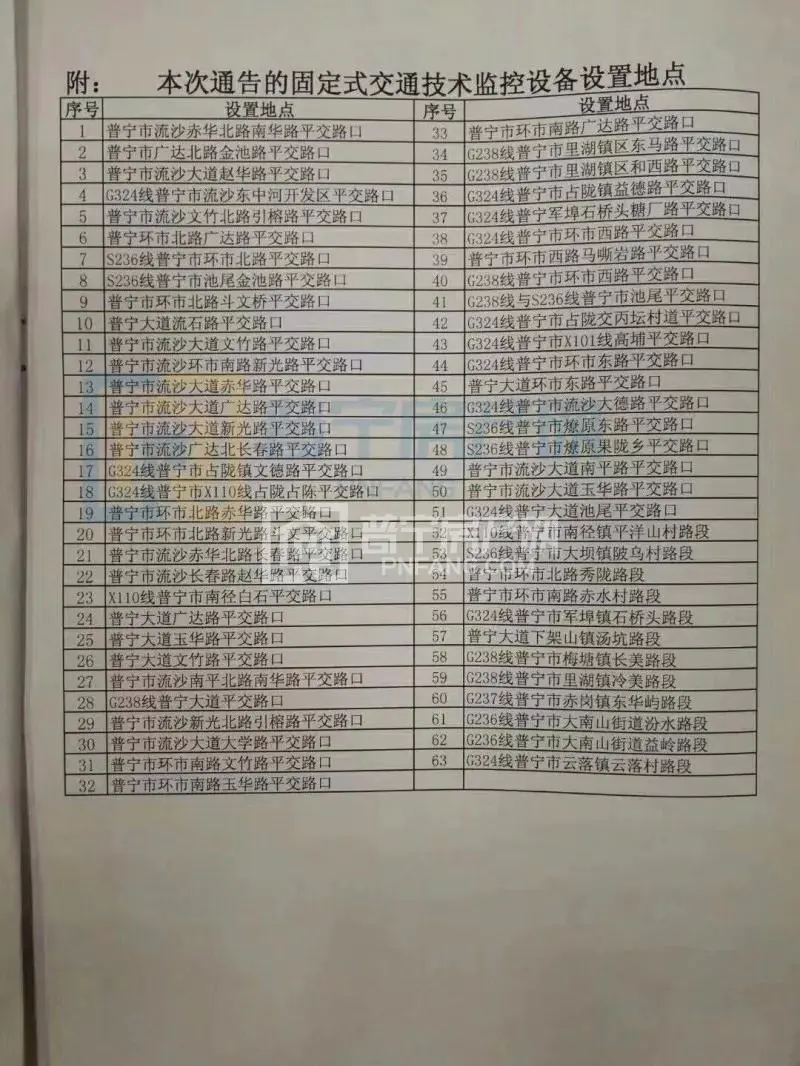 附： 本次通告的固定式交通技术监控设备设置地点
序号 设置地点 序号 设置地点
1 普宁市流沙赤华北路南华路平交路口 33 普宁市环市南路广达路平交路口
2 普宁市广达北路金池路平交路口 34 G238线普宁市里湖镇区东马路平交路口
3 普宁市流沙大道赵华路平交路口 35 G238线普宁市里湖镇区和西路平交路口
4 G324线普宁市流沙东中河开发区平交路口 36 G324线普宁市占陇镇益德路平交路口
5 普宁市流沙文竹北路引榕路平交路口 37 G324线普宁军埠石桥头糖厂路平交路口
6 普宁环市北路广达路平交路口 38 G324线普宁市环市西路平交路口
7 S236线普宁市环市北路平交路口 39 普宁市环市西路马嘶岩路平交路口
8 S236线普宁市池尾金池路平交路口 40 G238线普宁市环市西路平交路口
9 普宁市环市北路斗文桥平交路口 41 G238线与S236线普宁市池尾平交路口
10 普宁大道流石路平交路口 42 G324线普宁市占陇交丙坛村道平交路口
11 普宁市流沙大道文竹路平交路口 43 G324线普宁市X101线高埔平交路口
12 普宁市流沙环市南路新光路平交路口 44 G324线普宁市环市东路平交路口
13 普宁市流沙大道赤华路平交路口 45 普宁大道环市东路平交路口
14 普宁市流沙大道广达路平交路口 46 G324线普宁市流沙大德路平交路口
15 普宁市流沙大道新光路平交路口 47 S236线普宁市燎原东路平交路口
16 普宁市流沙广达北长春路平交路口 48 S236线普宁市燎原果陇乡平交路口
17 G324线普宁市占陇镇文德路平交路口 49 普宁市流沙大道南平路平交路口
18 G324线普宁市X110线占陇占陈平交路口 50 普宁市流沙大道玉华路平交路口
19 普宁市环市北路赤华路平交路口 51 G324线普宁大道池尾平交路口
20 普宁市环市北路新光路斗文平交路口 52 X110线普宁市南径镇平洋山村路段
21 普宁市流沙赤华北路长春路平交路口 53 S236线普宁市大坝镇陂乌村路段
22 普宁市流沙长春路赵华路平交路口 54 普宁市环市北路秀陇路段
23 X110线普宁市南径白石平交路口 55 普宁市环市南路赤水村路段
24 普宁大道广达路平交路口 56 G324线普宁市军埠镇石桥头路段
25 普宁大道玉华路平交路口 57 普宁大道下架山镇汤坑路段
26 普宁大道文竹路平交路口 58 G238线普宁市梅塘镇长美路段
27 普宁市流沙南平北路南华路平交路口 59 G238线普宁市里湖镇冷美路段
28 G238线普宁大道平交路口 60 G237线普宁市赤岗镇东华屿路段
29 普宁市流沙新光北路引榕路平交路口 61 G236线普宁市大南山街道汾水路段
30 普宁市流沙大道大学路平交路口 62 G236线普宁市大南山街道益岭路段
31 普宁市环市南路文竹路平交路口 63 G324线普宁市云落镇云落村路段
32 普宁市环市南路玉华路平交路口
PNFANG.COM